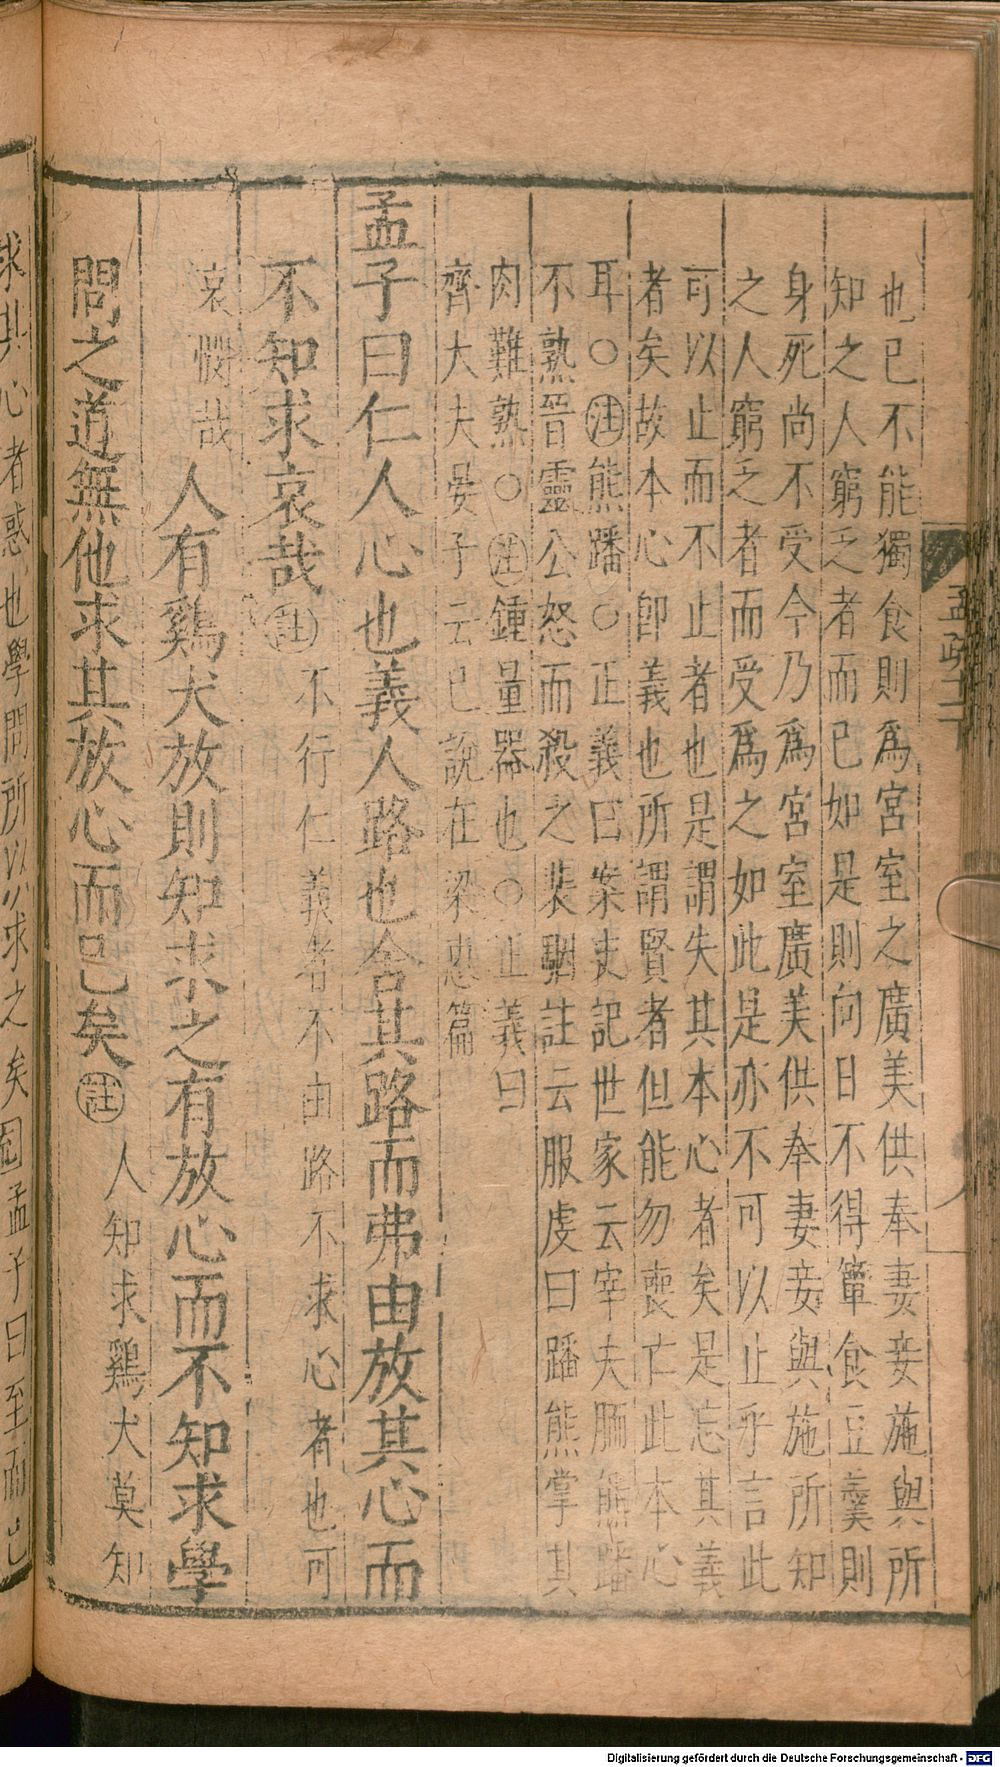 孟疏二
也已不能獨食則爲宮室之廣美供奉妻妾施與所
知之人窮乏者而已如是則向日不得簞食豆羹則
身死尚不受今乃爲宮室廣美供奉妻妾與施所知
之人窮乏者而受爲之如此是亦不可以止乎言此
可以止而不止者也是謂失其本心者矣是忘其義
者矣故本心卽義也所謂賢者但能勿喪亡此本心
耳○注熊蹯○正義曰案史記世家云宰夫胹熊蹯
不熟晉靈公怒而殺之裴駰註云服虔曰蹯熊掌其
肉難熟○注鍾量器也○正義曰
齊大夫晏子云已說在梁惠篇
孟子曰仁人心也義人路也舍其路而弗由放其心而
不知求哀哉註不行仁義者不由路不求心者也可
哀憫哉人有鷄犬放則知求之有放心而不知求學
問之道無他求其放心而已矣註人知求鷄犬莫知
求其心者惑也學問所以求之矣 孟子曰至而已
Digitalisierung gefördert durch die Deutsche Forschungsgemeinschaft - DFG